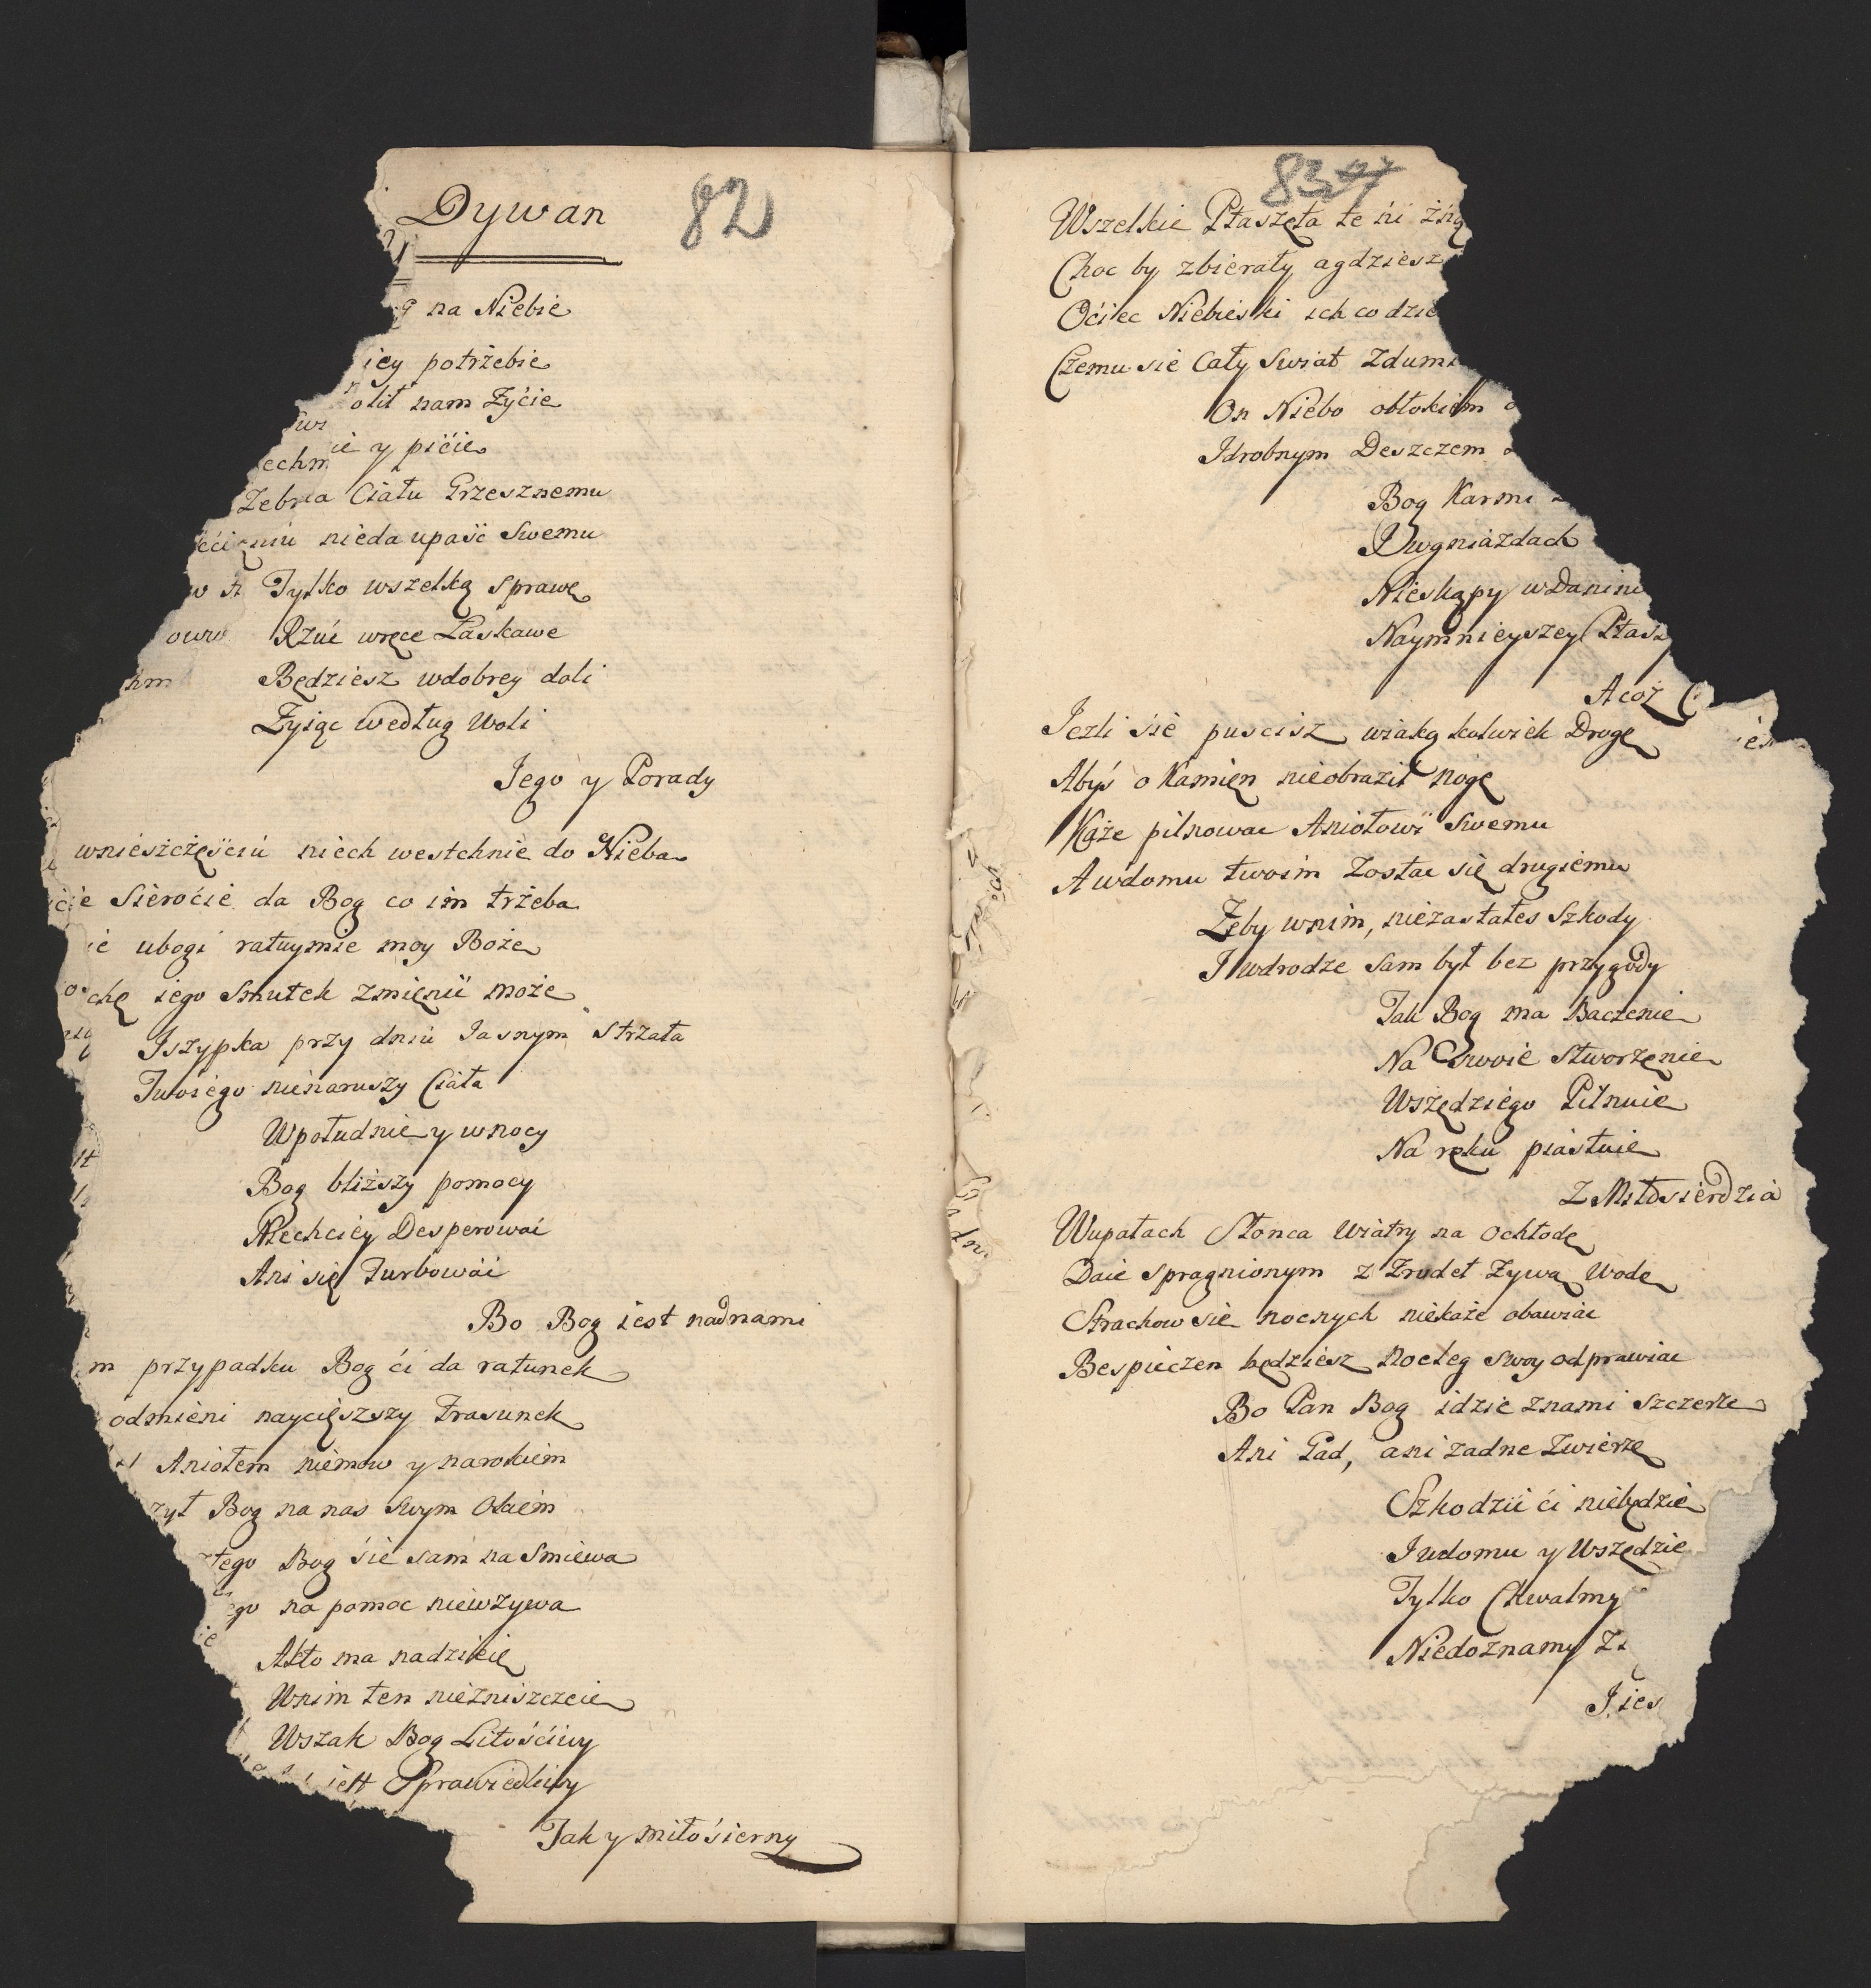 Dywan
82
na Niebie
icy potrzebie
olil nam Zyćie
ie y pićie
Zebra Ciału Grzesznemu
nieda upaść Swemu
Tylko wszelką sprawę
Rzuć wręce Łaskawe
Będziesz wdobrey doli
Zyiąc według Woli
Jego y Porady
wnieszczęściu niech westchnie do Nieba
Sieroćie da Bog co im trzeba
ie ubogi ratuymie moy Boże
chę iego Smutek zmięnić może
Iszypka przy dniu Jasnym Strzała
Twoiego nienaruszy Ciała
Wpołudnie y wnocy
Bog bliższy pomocy
Niechciey Desperować
Ani się Turbować
Bo Bog iest nadnami
m przypadku Bog ći da ratunek
odmieni naycięszszy Frasunek
Aniołem niemow y narokiem
zył Bog na nas Swym Okiem
tego Bog śie sam na Smiewa
ego na pomoc niewzywa
Akto ma nadzieię
Wnim ten nieżniszczeie
Wszak Bog Litośćiwy
iest Sprawiedliwy
Jak y miłośierny
83 47
Wszelkie Ptaszęta te ńi żną
Choc by zbierały agdziesz
Oćiec Niebieski ich co dzie
Czemu sie Cały Swiat Zdum
On Niebo obłokiem o
Idrobnym Deszczem
Bog Karmi
I wgniazdach
Nieskąpy wDanini
Naymnieyszey Ptasz
Acoż C
Jezli śie puscisz wiaką kolwiek Drogę
Abyś o Kamięn nieobraził nogę
Każe pilnowac Aniołowi Swemu
Awdomu twoim Zostac się drugiemu
Zeby wnim, niezastałes Szkody
I wdrodze sam był bez przygody
Tak Bog ma Baczenie
Na Swoie Stworzęnie
Wszędziego Pilnuie
Na ręku piastuie
Z Miłosierdzia
Wupałach Słonca Wiatry na Ochłodę
Daie spragnionym z Zrudeł Zywą Wodę
Strachow sie nocnych niekaże obawiac
Bespieczen będziesz Nocleg swoy odprawiac
Bo Pan Bog idzie znami Szczerze
Ani Gad, ani żadne Zwierzę
Szkodzić ći niebędzie
Iwdomu y Wszędzie
Tylko Chwalmy
Niedoznamy Z
I ies